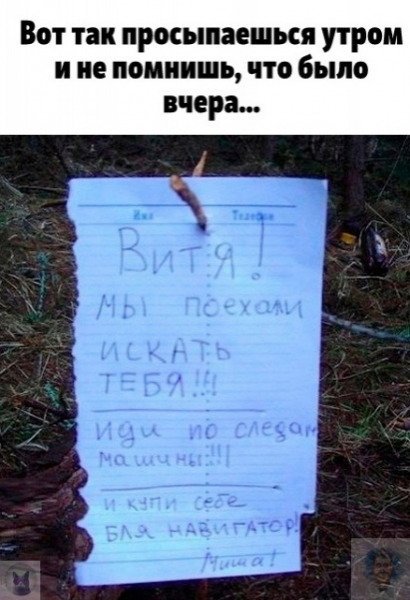 Вот так просыпаешься утром
и не помнишь, что было
вчера...
Имя Телефон
Витя!
МЫ поехали
ИСКАТЬ
ТЕБЯ!!!
иди по следам
машины!!!
и купи себе
БЛЯ НАВИГАТОР!
Миша!